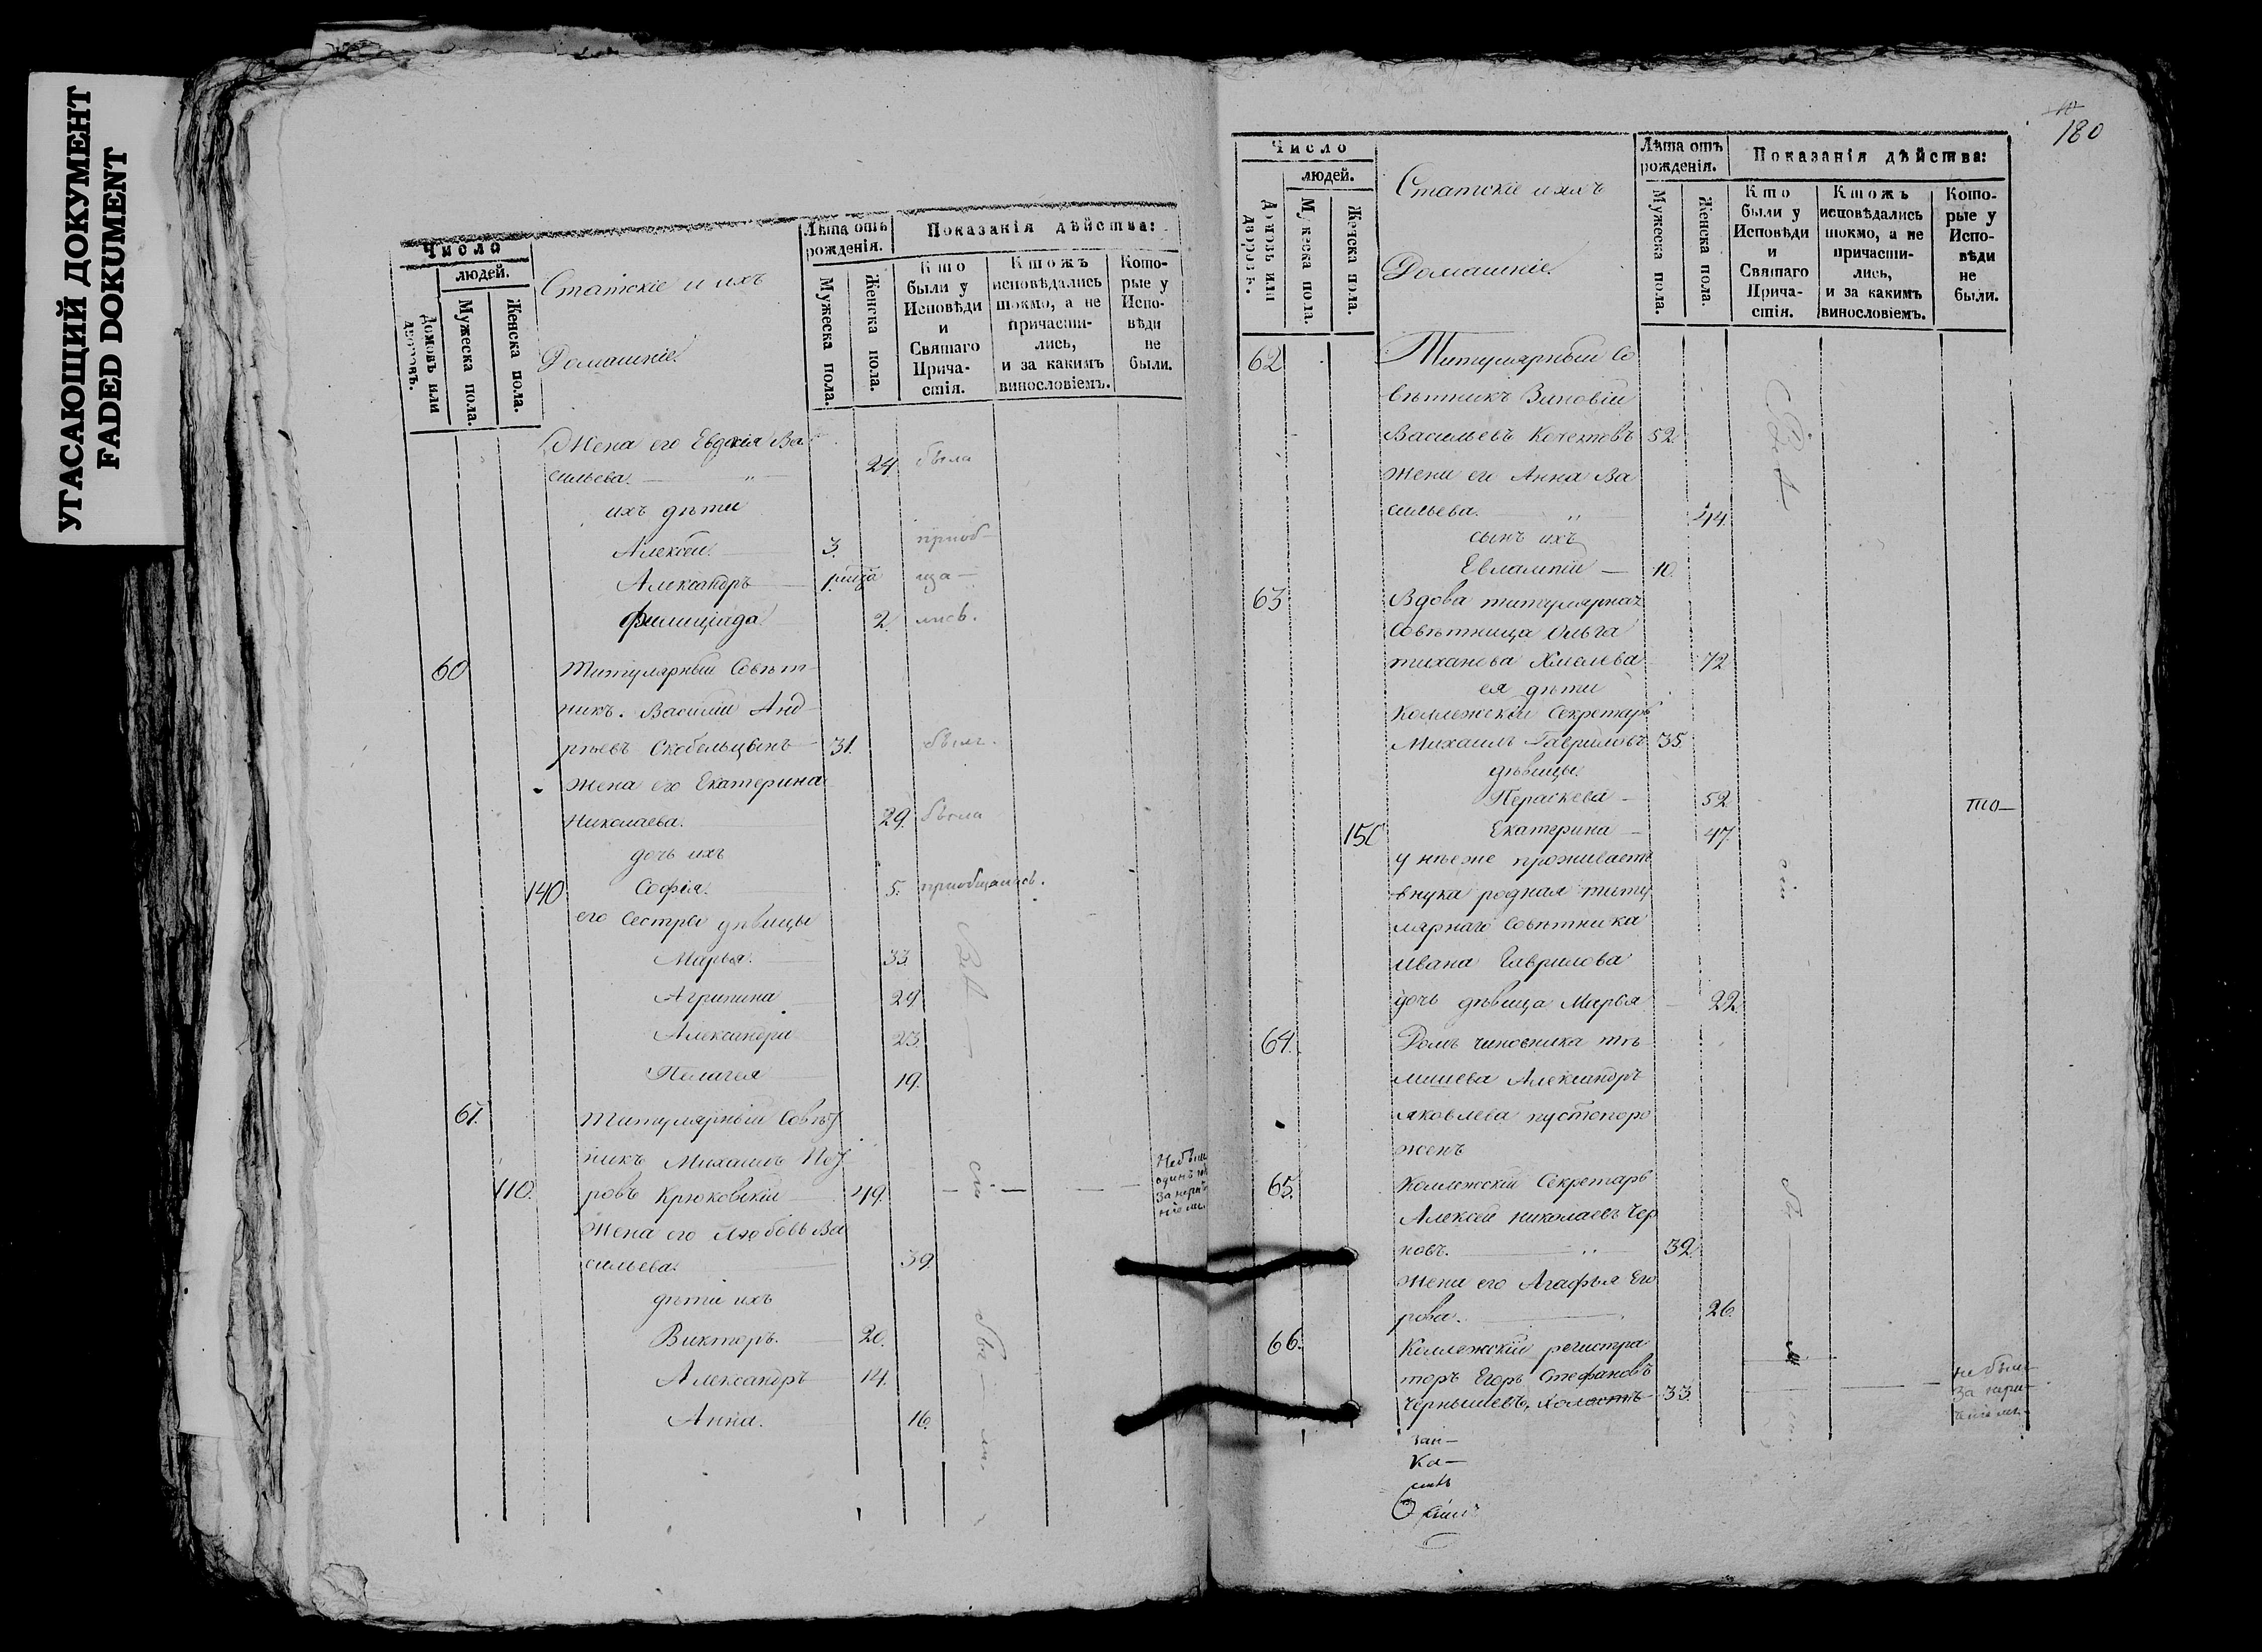 УГАСАЮЩИЙ ДОКУМЕНТ
FADED DOKUMENT
Число
людей.
Домовъ или дворовъ.
Мужеска пола.
Женска пола.
Статскіе и ихъ
Домашніе
Лѣта отъ рожденія.
Мужеска пола.
Женска пола.
Показанія дѣйства:
Кто были у Исповѣди и Святаго Прича-стія.
Ктожъ исповѣдались токмо, а не причасти-лись, и за какимъ винословіемъ.
Кото-рые у Испо-вѣди не были.
Жена его Евдокія Ва
сильева. 24 была
ихъ дѣти
Алексѣй. 3. приоб-
Александръ 1. ща-
2. лись.
60 Титулярный Совѣт-
никъ. Василій Анд-
рѣевъ Скобельцынъ 31. былъ.
жена его Екатерина
Николаева. 29. была
дочь ихъ
140 Софія. 5. приобщались.
его сестры дѣвицы
Марья. 33.
Агрипина 29
Александра 23.
Пелагея 19.
61. Титулярный Совѣт
никъ Михаилъ Пет
110. ровъ Крюковскій 49.
Жена его Любовь Ва
сильева. 39.
дѣти ихъ
Викторъ. 20.
Александръ 14.
Анна. 16.
180
Число
людей.
Домовъ или дворовъ.
Мужеска пола.
Женска пола.
Статскіе и ихъ
Домашніе
Лѣта отъ рожденія.
Мужеска пола.
Женска пола.
Показанія дѣйства:
Кто были у Исповѣди и Святаго Прича-стія.
Ктожъ исповѣдались токмо, а не причасти-лись, и за какимъ винословіемъ.
Кото-рые у Испо-вѣди не были.
62 Титулярный Со
вѣтникъ Зиновій
Васильевъ 52.
жена его Анна Ва
сильева. 44.
сынъ ихъ
Евлампій 10.
63 Вдова титулярная
Совѣтница Ольга
Хмелева 72
ея дѣти
Коллежскій Секретарь
Михаилъ Гавриловъ 35.
дѣвицы.
Параскева 52
150 Екатерина 47.
у нѣе же проживаетъ
внука родная титу
лярнаго Совѣтника
Ивана Гаврилова
дочь дѣвица Марья 22.
64. Домъ чиновника
Александръ
Яковлева пустопоро
женъ
65. Коллежскій Секретарь
Алексѣй Николаевъ Чер
новъ. 32.
Жена его Агафья Его
рова. 26.
66. Коллежскій регистра
торъ Егоръ Стефановъ не был
Чернышевъ, холостъ 33. за нера-